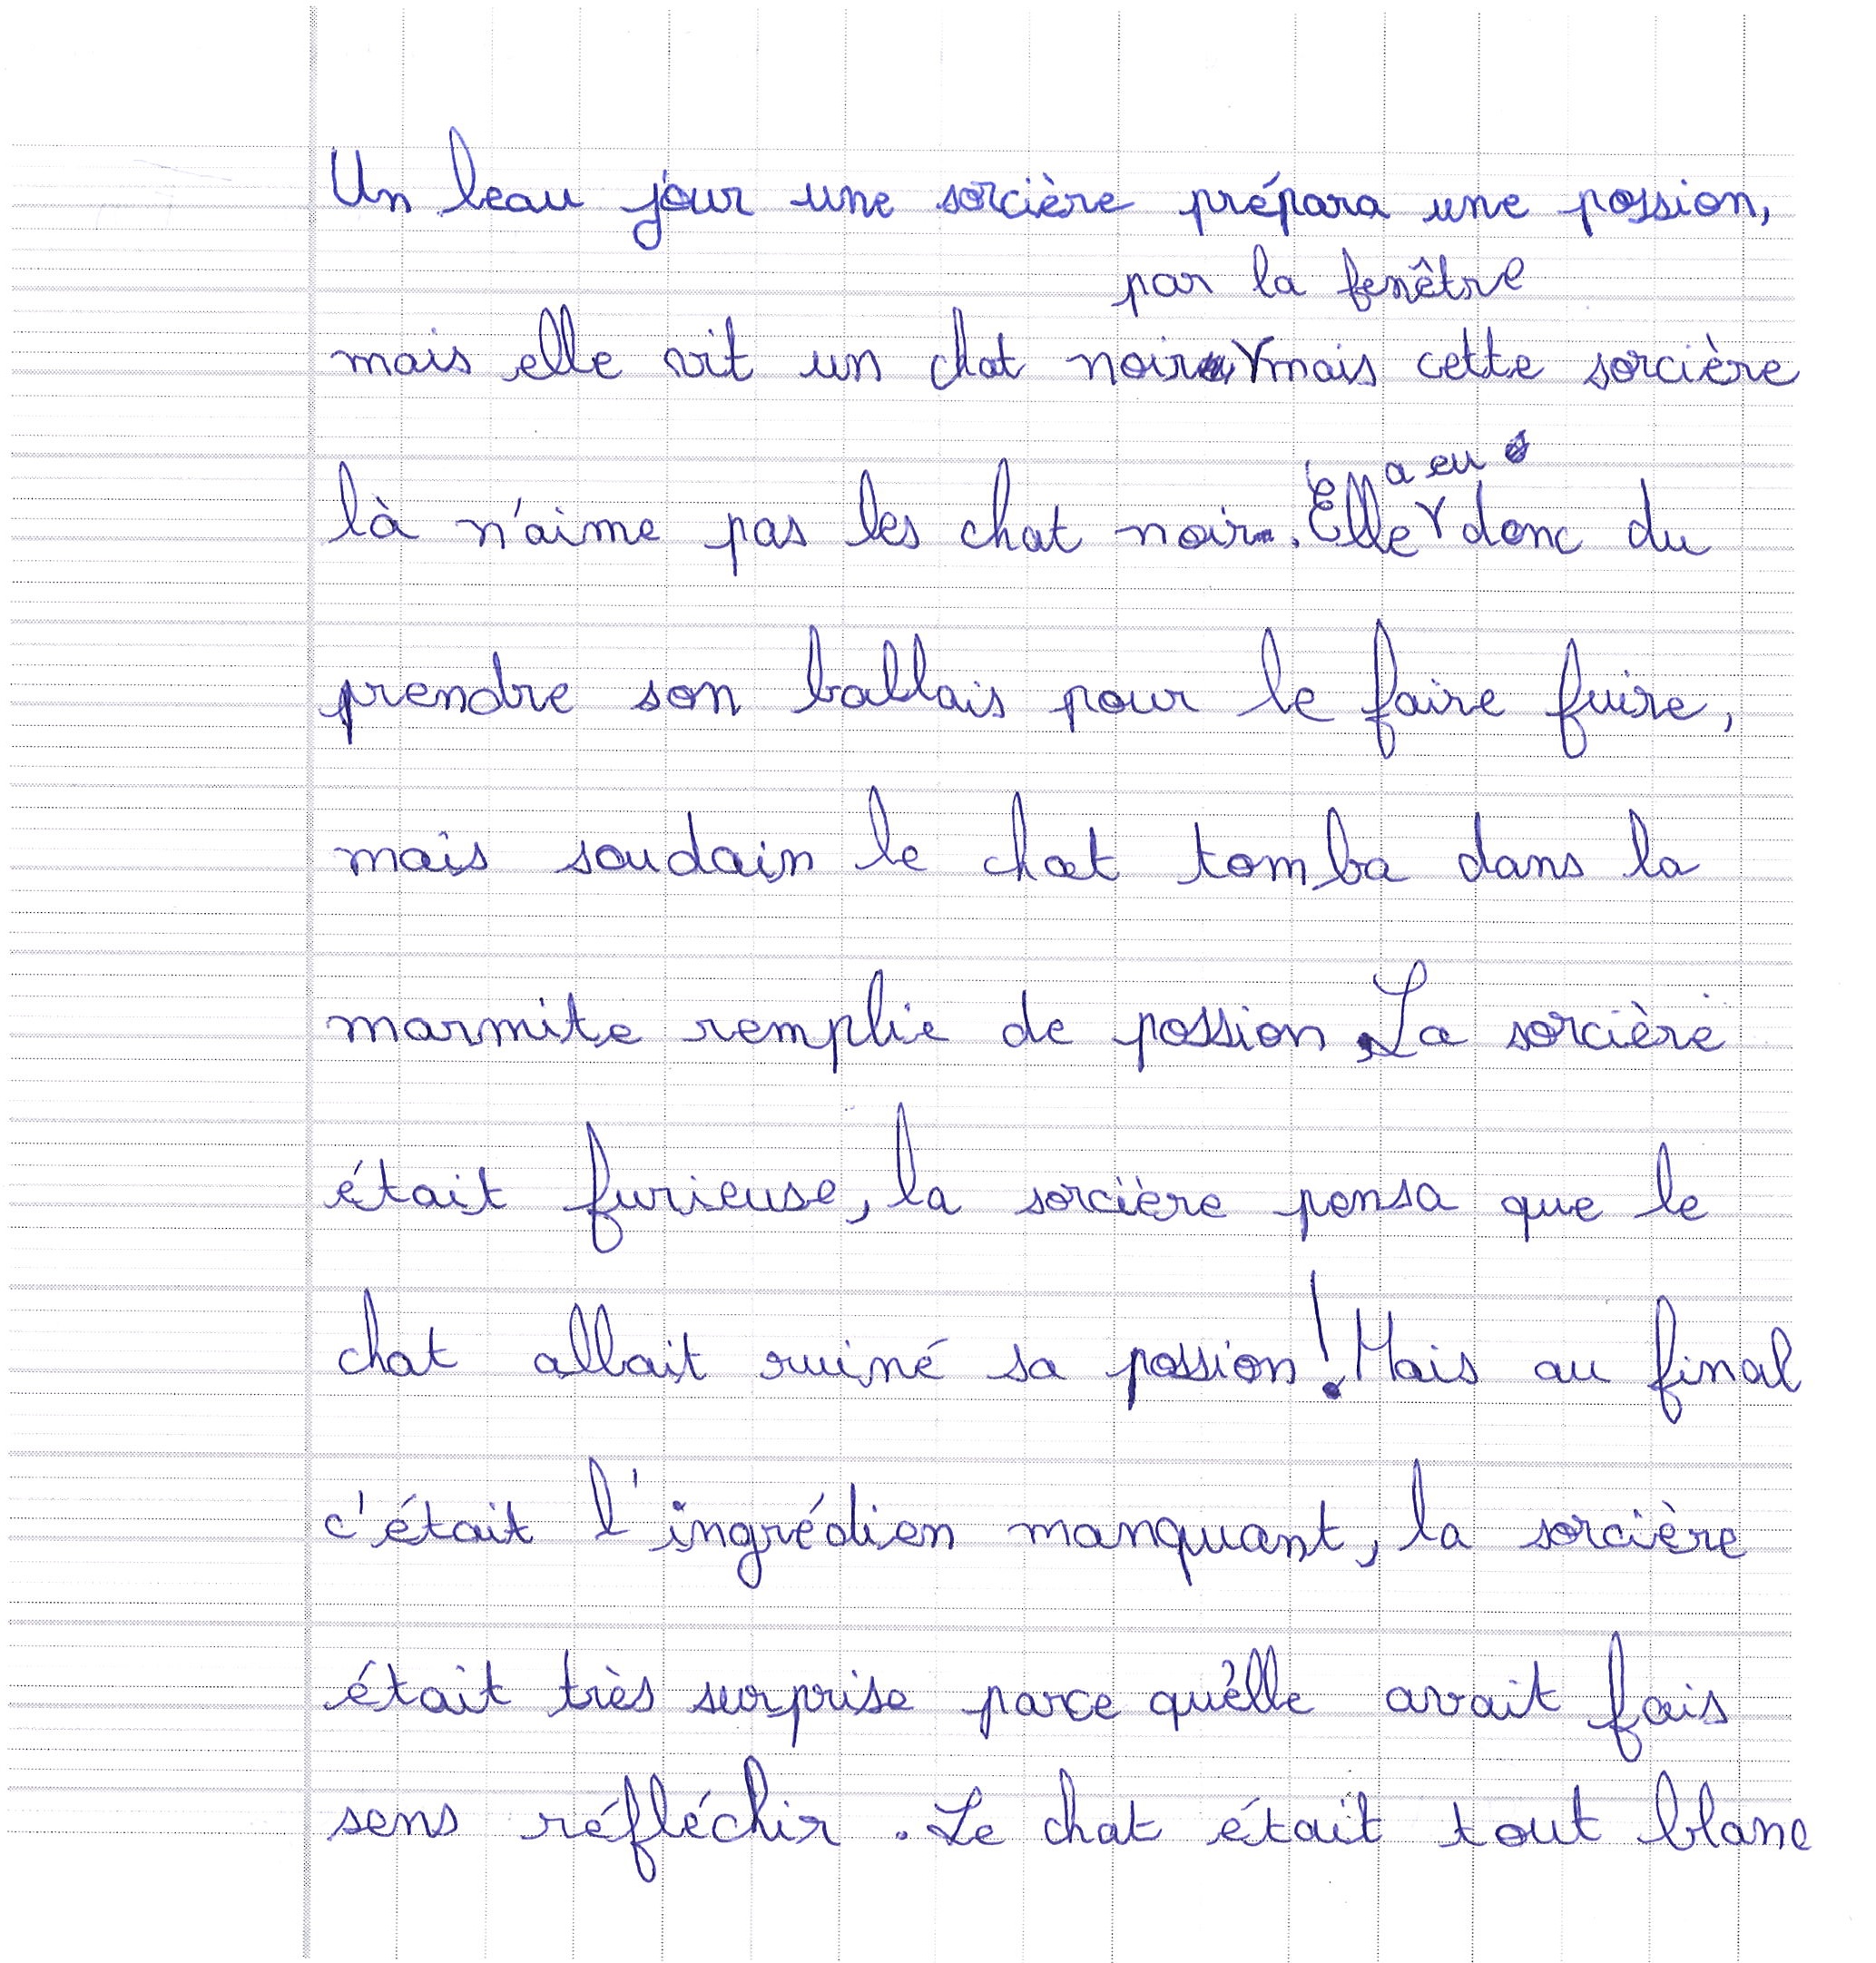 Un beau jour une sorcière prépara une possion,
par la fenêtre
mais elle vit un chat noir mais cette sorcière
a eu
là n'aime pas les chat noir. Elle donc du
prendre son ballais pour le faire fuire,
mais soudain le chat tomba dans la
marmite remplie de possion. La sorcière
était furieuse, la sorcière pensa que le
chat allait ruiné sa possion! Mais au final
c'était l'ingrédien manquant, la sorcière
était très surprise parce qu'elle avait fais
sens réfléchir. Le chat était tout blanc